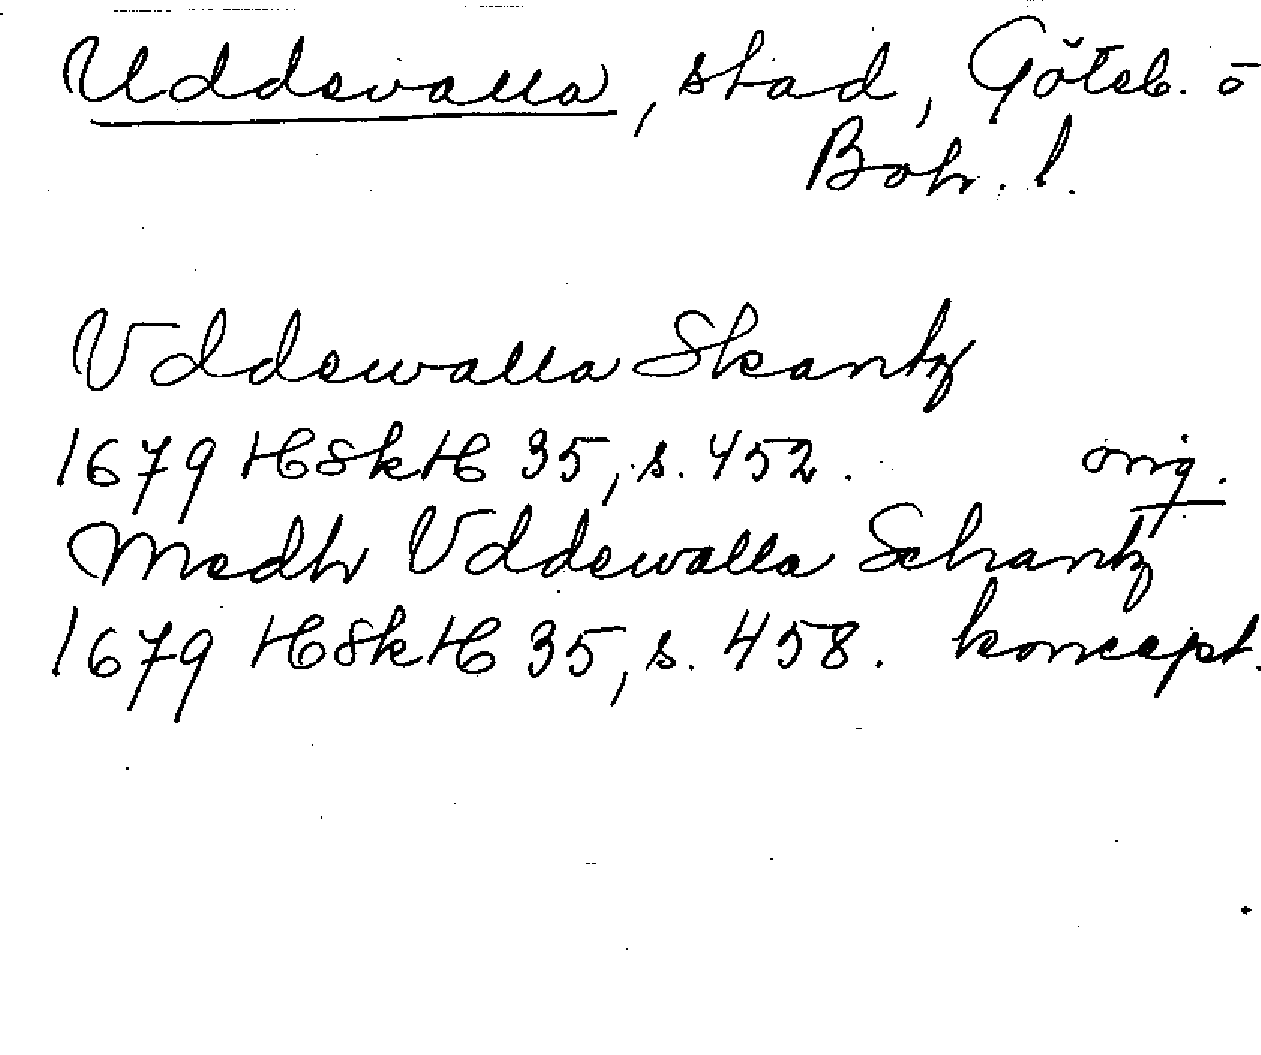 Uddevalla, stad, Göteb. o
Boh. l.
Vddewalla Skantz
1679 HSkH 35, s. 452. orig.
Medh Vddewalla Schantz
1679 HSkH 35, s. 458. koncept.